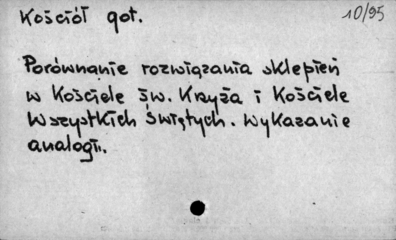 Kościół got.
10/95
Porównanie rozwiązania sklepień
w Kościele św. Krzyża i Kościele
Wszystkich Świętych. Wykazanie
analogii.